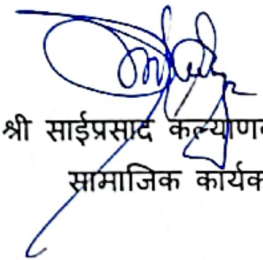 श्री साईप्रसाद कल्याण
सामाजिक कार्यक